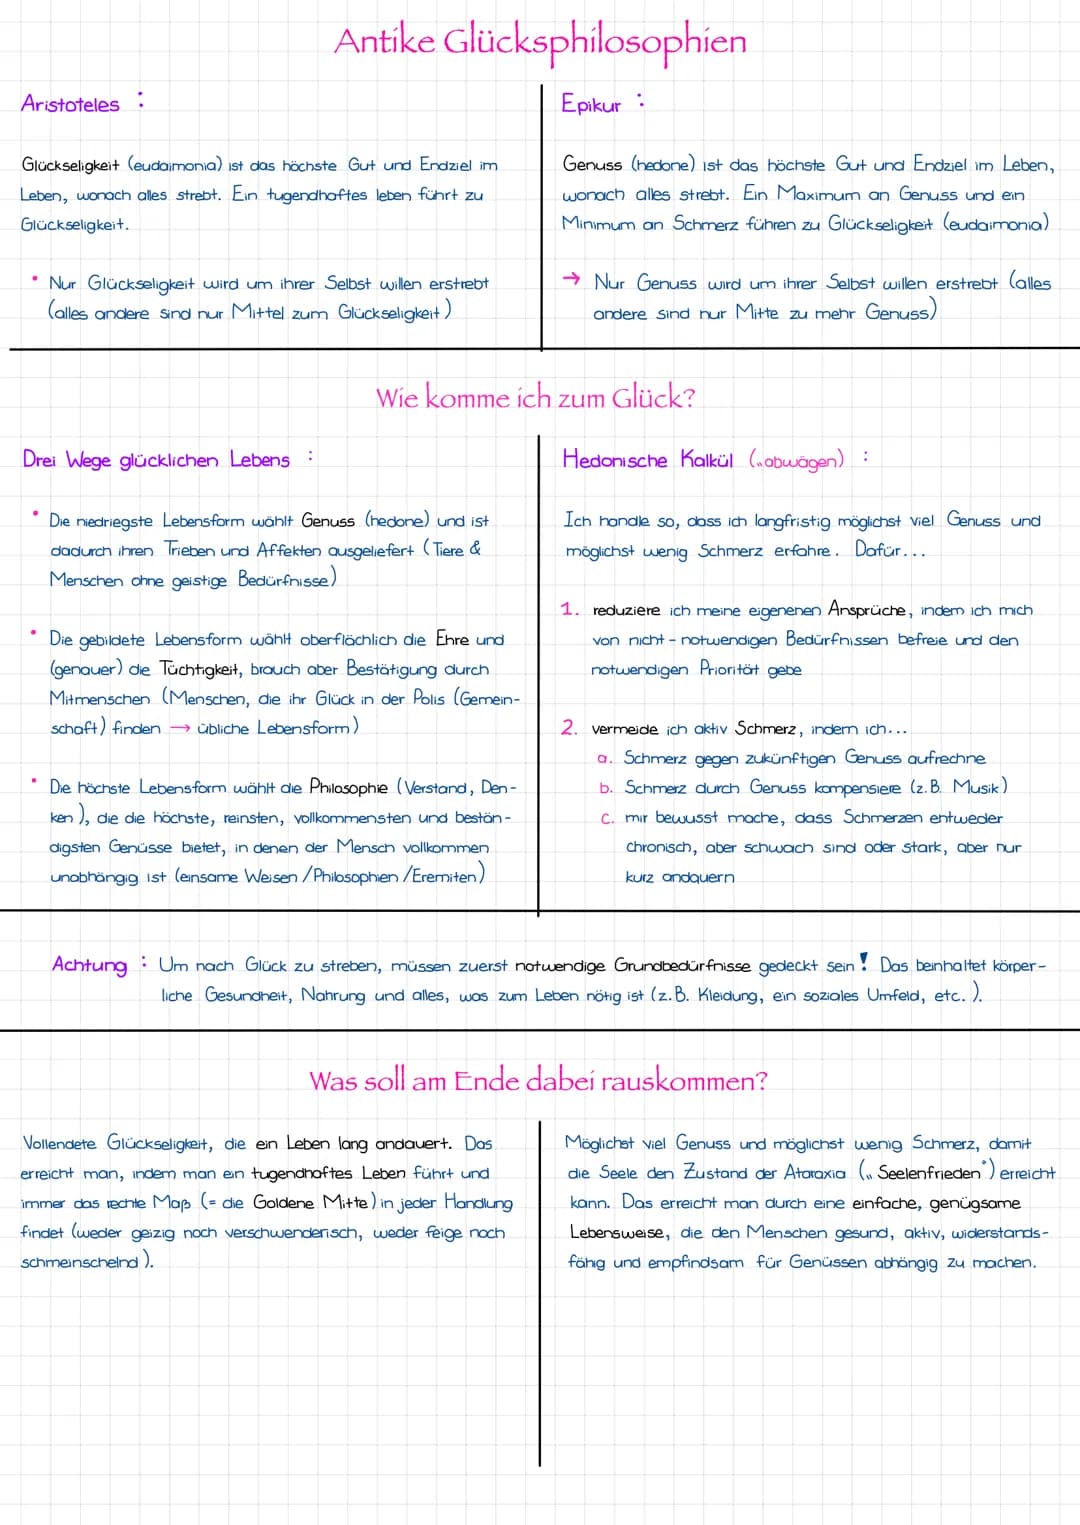 Antike Glücksphilosophien
Aristoteles :
Glückseligkeit (eudaimonia) ist das höchste Gut und Endziel im
Leben, wonach alles strebt. Ein tugendhaftes leben führt zu
Glückseligkeit.
• Nur Glückseligkeit wird um ihrer Selbst willen erstrebt
(alles andere sind nur Mittel zum Glückseligkeit)
Epikur :
Genuss (hedone) ist das höchste Gut und Endziel im Leben,
wonach alles strebt. Ein Maximum an Genuss und ein
Minimum an Schmerz führen zu Glückseligkeit (eudaimonia)
→ Nur Genuss wird um ihrer Selbst willen erstrebt (alles
andere sind nur Mitte zu mehr Genuss)
Wie komme ich zum Glück?
Drei Wege glücklichen Lebens :
• Die niedriegste Lebensform wählt Genuss (hedone) und ist
dadurch ihren Trieben und Affekten ausgeliefert (Tiere &
Menschen ohne geistige Bedürfnisse)
• Die gebildete Lebensform wählt oberflächlich die Ehre und
(genauer) die Tüchtigkeit, brauch aber Bestätigung durch
Mitmenschen (Menschen, die ihr Glück in der Polis (Gemein-
schaft) finden → übliche Lebensform)
• Die höchste Lebensform wählt die Philosophie (Verstand, Den-
ken), die die höchste, reinsten, vollkommensten und bestän-
digsten Genüsse bietet, in denen der Mensch vollkommen
unabhängig ist (einsame Weisen / Philosophien / Eremiten)
Hedonische Kalkül („abwägen) :
Ich handle so, dass ich langfristig möglichst viel Genuss und
möglichst wenig Schmerz erfahre. Dafür...
1. reduziere ich meine eigenenen Ansprüche, indem ich mich
von nicht - notwendigen Bedürfnissen befreie und den
notwendigen Priorität gebe
2. vermeide ich aktiv Schmerz, indem ich...
a. Schmerz gegen zukünftigen Genuss aufrechne
b. Schmerz durch Genuss kompensiere (z.B. Musik)
c. mir bewusst mache, dass Schmerzen entweder
chronisch, aber schwach sind oder stark, aber nur
kurz andauern
Achtung : Um nach Glück zu streben, müssen zuerst notwendige Grundbedürfnisse gedeckt sein! Das beinhaltet körper-
liche Gesundheit, Nahrung und alles, was zum Leben nötig ist (z.B. Kleidung, ein soziales Umfeld, etc.).
Was soll am Ende dabei rauskommen?
Vollendete Glückseligkeit, die ein Leben lang andauert. Das
erreicht man, indem man ein tugendhaftes Leben führt und
immer das rechte Maß (= die Goldene Mitte) in jeder Handlung
findet (weder geizig noch verschwenderisch, weder feige noch
schmeinschelnd).
Möglichst viel Genuss und möglichst wenig Schmerz, damit
die Seele den Zustand der Ataraxia („Seelenfrieden") erreicht
kann. Das erreicht man durch eine einfache, genügsame
Lebensweise, die den Menschen gesund, aktiv, widerstands-
fähig und empfindsam für Genüssen abhängig zu machen.